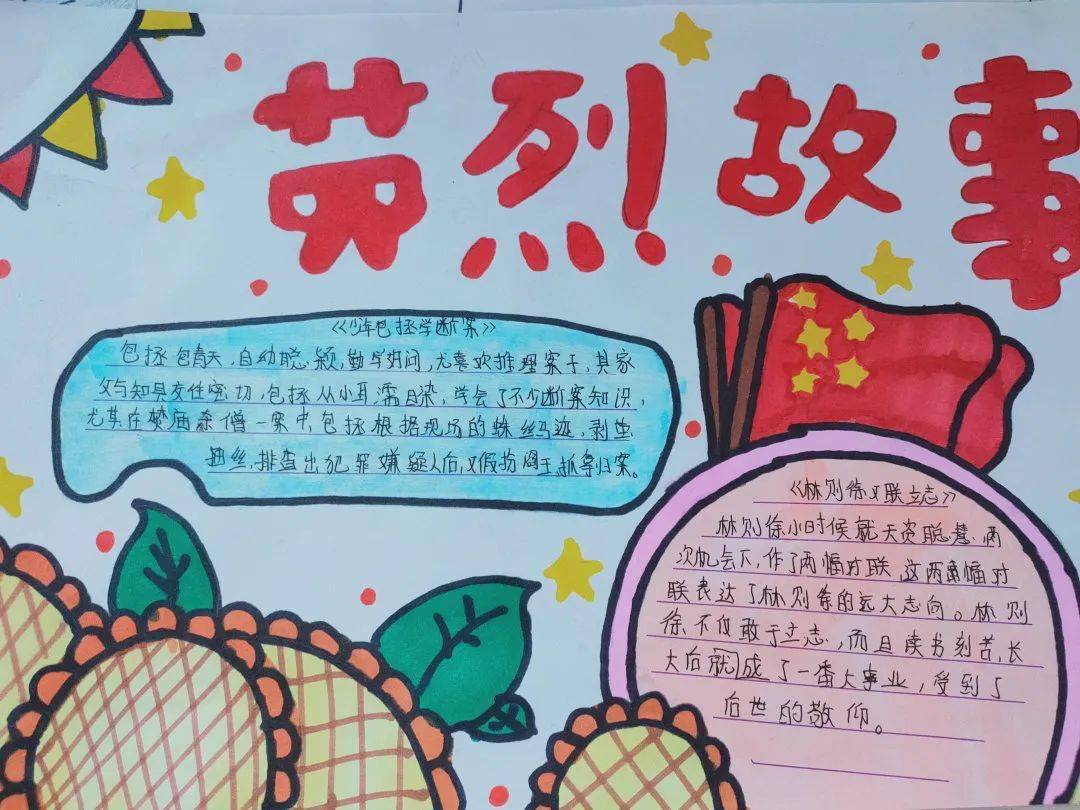 英烈故事
《少年包拯学断案》
包拯包青天，自幼聪颖，勤学好问，尤喜欢推理案子，其家
父与知县交往密切，包拯从小耳濡目染，学会了不少断案知识，
尤其在焚庙杀僧一案中，包拯根据现场的蛛丝马迹，剥茧
抽丝，排查出犯罪嫌疑人后，又假扮阎王抓拿归案。
《林则徐对联立志》
林则徐小时候就天资聪慧，两
次机会下，作了两幅对联，这两幅对
联表达了林则徐的远大志向。林则
徐不仅敢于立志，而且读书刻苦，长
大后就成了一番大事业，受到了
后世的敬仰。